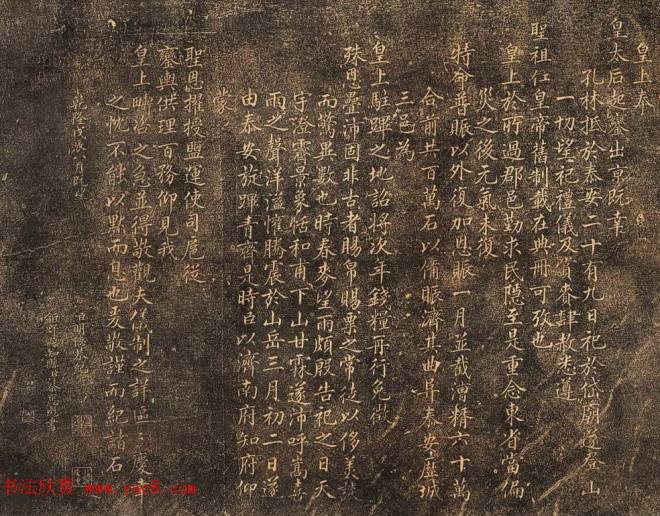 皇上奉
皇太后起鑾出京既幸
孔林抵於泰安二十有九日祀於岱廟遂登山
一切望祀禮儀及賞賚肆赦悉遵
聖祖仁皇帝舊制載在典冊可攷也
皇上於所過郡邑勤求民隱至是重念東省當偏
災之後元氣未復
特命普賑以外復加恩賑一月並截漕糧六十萬
合前共百萬石以備賑濟其曲阜泰安歷城
三邑為
皇上駐蹕之地詔將次年錢糧再行免徵
殊恩疊沛固非古者賜帛賜粟之常徒以侈美
而驚異數也時春麥望雨頗殷告祀之日天
宇澄霽景象恬和甫下山甘霖遂沛呼嵩喜
雨之聲洋溢懽騰震於山岳三月初二日遂
由泰安旋蹕青齊是時臣以濟南府知府仰
蒙
聖恩擢授鹽運使司扈從
鑾輿供理百務仰見我
皇上疇咨之急並得敬觀天儀制之詳區區慶
之忱不能以默而息也爰敬謹而紀諸石
乾隆戊辰八月既
書法欣赏 www.yac8.com